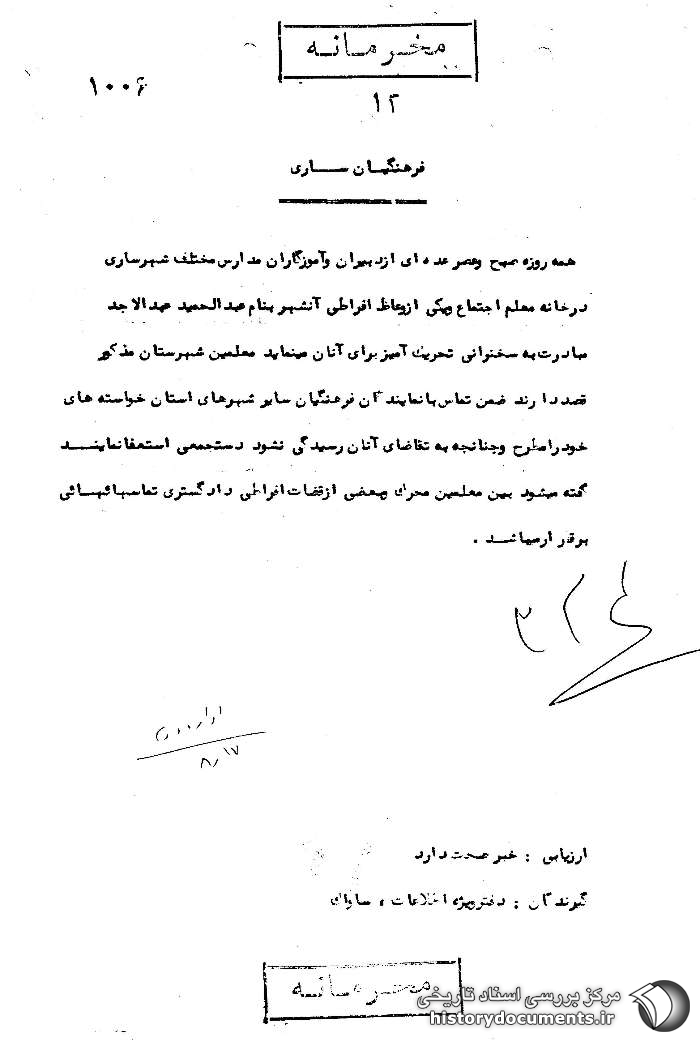 محرمانه
۱۰۰۶
۱۲
فرهنگیان ساری
همه روزه صبح وعصر عده ای ازدبیران وآموزگاران مدارس مختلف شهرساری
درخانه معلم اجتماع ویکی ازوعاظ افراطی آنشهر بنام عبدالحمید عبدالاجد
مبادرت به سخنرانی تحریک آمیز برای آنان مینماید معلمین شهرستان مذکور
قصد دارند ضمن تماس با نمایندگان فرهنگیان سایر شهرهای استان خواسته های
خودرامطرح وچنانچه به تقاضای آنان رسیدگی نشود دستجمعی استعفانمایند
گفته میشود بین معلمین محرک وبعضی ازقضات افراطی دادگستری تماسهائی
برقرارمیباشد .
۳۲۴
۸٫۱۷
ارزیابی : خبر صحت دارد
گیرندگان : دفترویژه اطلاعات ، ساواک
محرمانه
مرکز بررسی اسناد تاریخی
historydocuments.ir